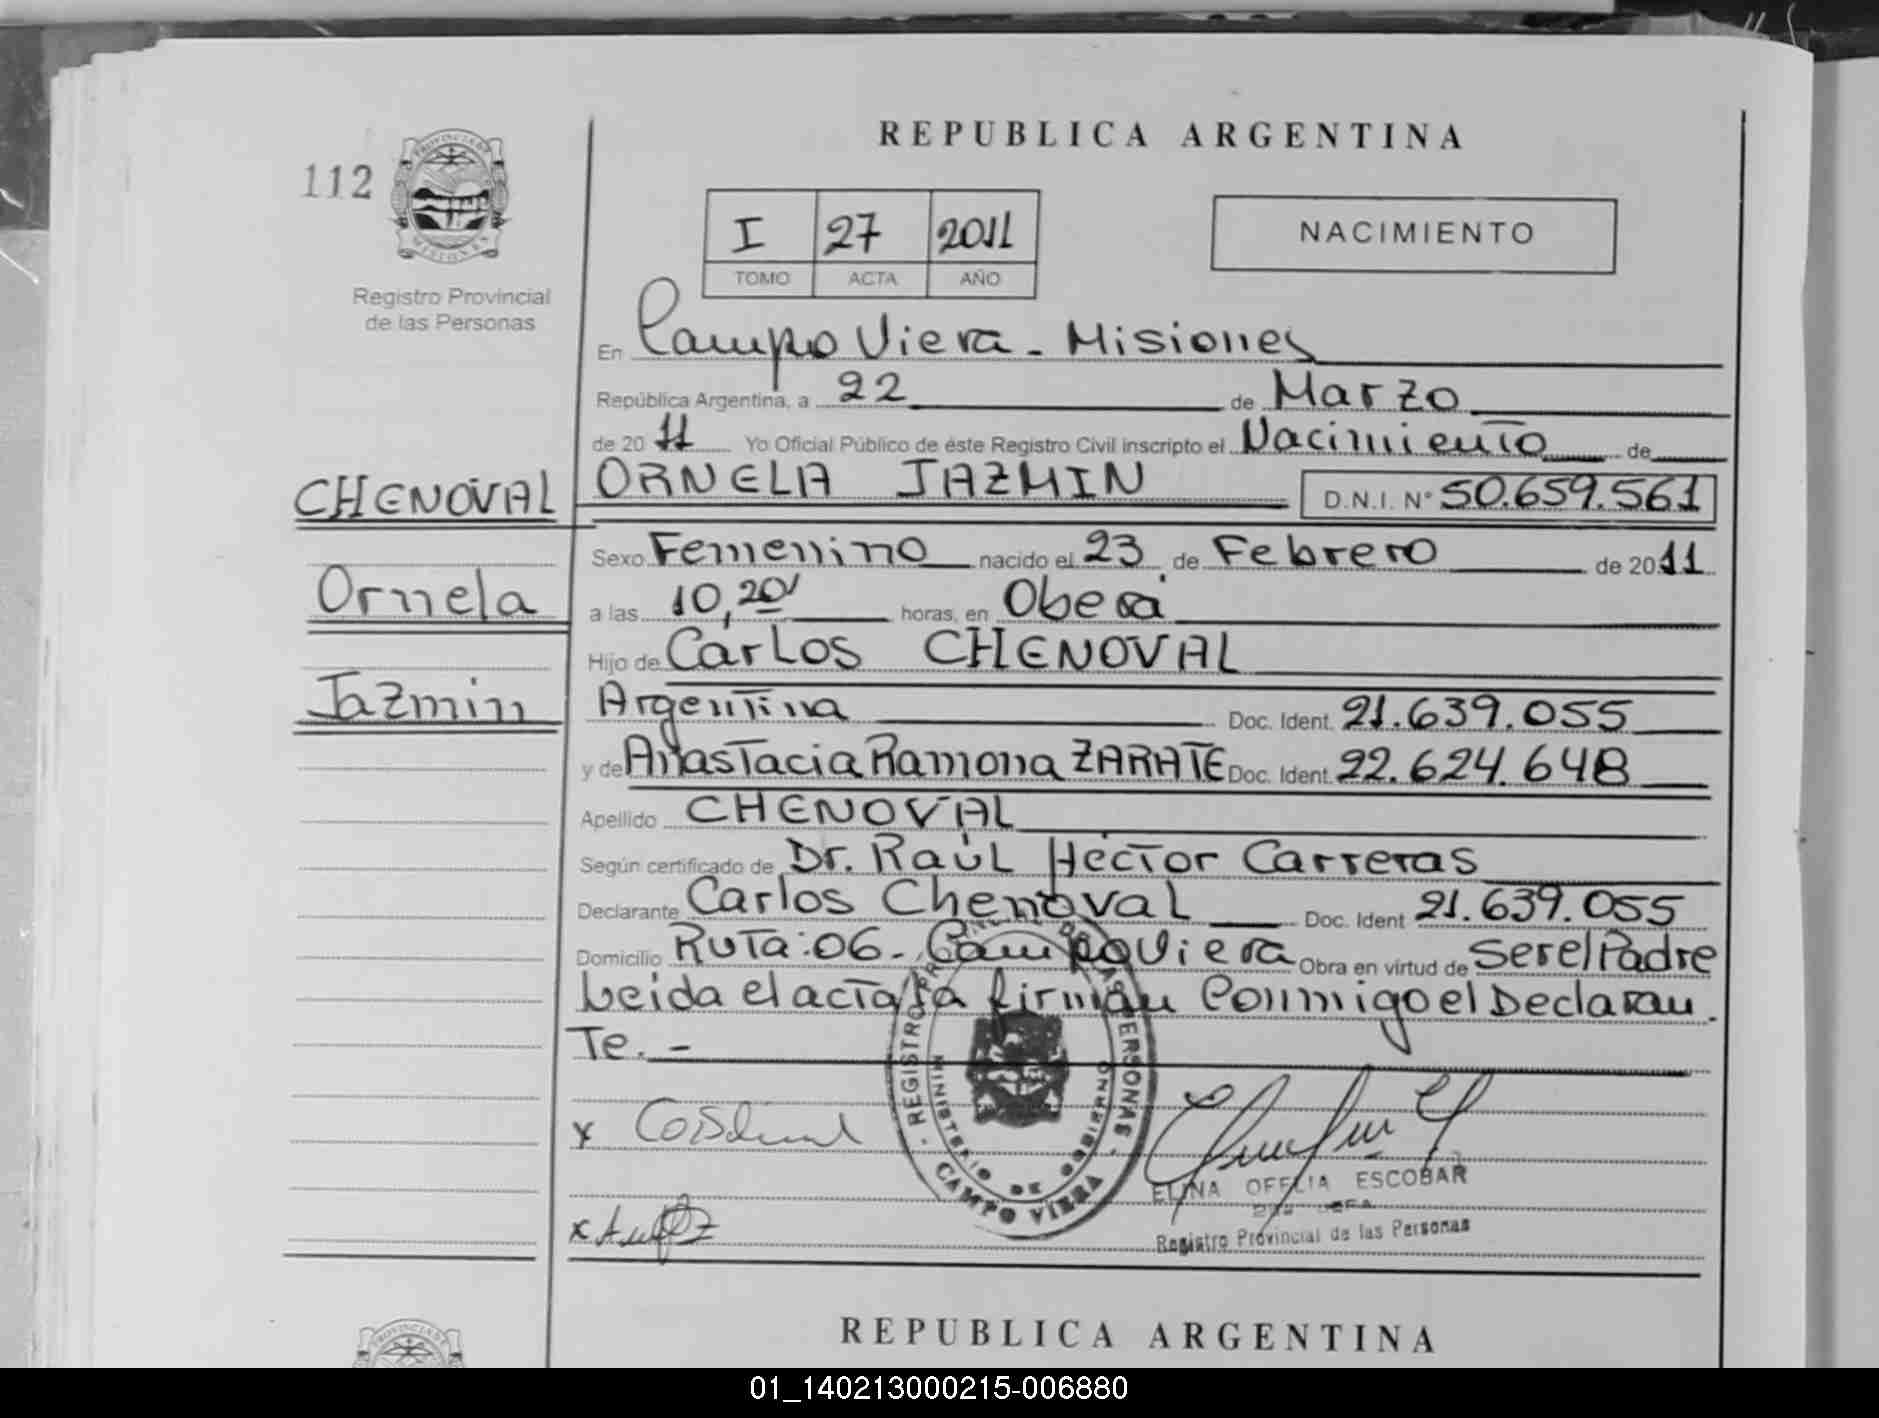 REPUBLICA ARGENTINA
112
PROVINCIA DE
MISIONES
Registro Provincial
de las Personas
I 27 2011
TOMO ACTA AÑO
NACIMIENTO
En Campo Viera - Misiones
República Argentina, a 22 de Marzo
de 2011 Yo Oficial Público de éste Registro Civil inscripto el Nacimiento de
CHENOVAL ORNELA JAZMIN D.N.I. N° 50.659.561
Sexo Femenino nacido el 23 de Febrero de 2011
Ornela a las 10,20' horas, en Oberá
Hijo de Carlos CHENOVAL
Jazmin Argentina Doc. Ident. 21.639.055
y de Anastacia Ramona ZARATE Doc. Ident. 22.624.648
Apellido CHENOVAL
Según certificado de Dr. Raúl Héctor Carreras
Declarante Carlos Chenoval Doc. Ident 21.639.055
Domicilio Ruta: 06 - Campo Viera Obra en virtud de Ser el Padre
Leida el acta la firman Conmigo el Declaran
Te. -
REGISTRO PROVINCIAL DE LAS PERSONAS
MINISTERIO DE GOBIERNO
CAMPO VIERA
x
ELINA OFELIA ESCOBAR
JEFA
Registro Provincial de las Personas
x
REPUBLICA ARGENTINA
PROVINCIA DE
01_140213000215-006880